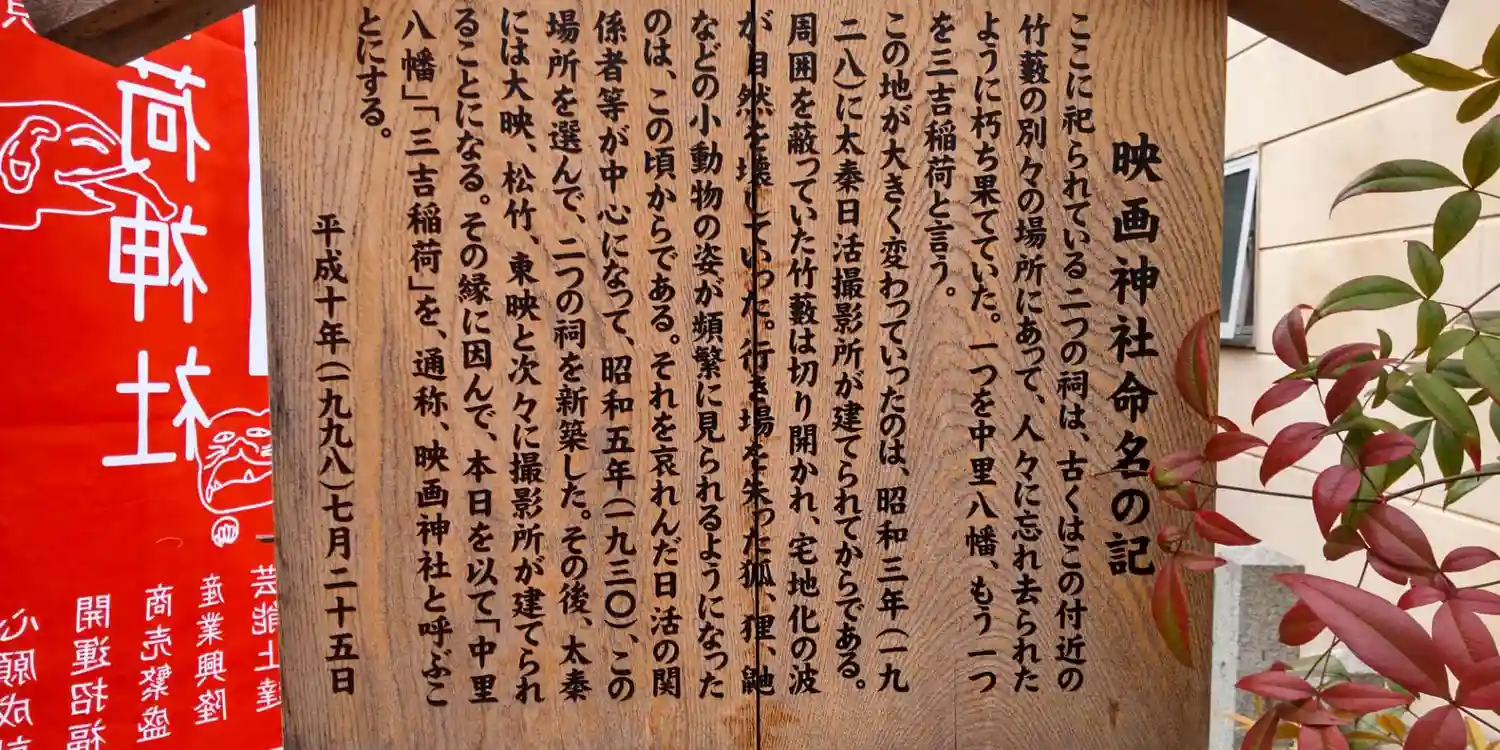 映画神社命名の記
ここに祀られている二つの祠は、古くはこの付近の
竹藪の別々の場所にあって、人々に忘れ去られた
ように朽ち果てていた。一つを中里八幡、もう一つ
を三吉稲荷と言う。
この地が大きく変わっていったのは、昭和三年(一九
二八)に太秦日活撮影所が建てられてからである。
周囲を蔽っていた竹藪は切り開かれ、宅地化の波
が自然を壊していった。行き場を失った狐、狸、鼬
などの小動物の姿が頻繁に見られるようになった
のは、この頃からである。それを哀れんだ日活の関
係者等が中心になって、昭和五年(一九三〇)、この
場所を選んで、二つの祠を新築した。その後、太秦
には大映、松竹、東映と次々に撮影所が建てられ
ることになる。その縁に因んで、本日を以て「中里
八幡」「三吉稲荷」を、通称、映画神社と呼ぶこ
とにする。
平成十年(一九九八)七月二十五日
荷神社
芸能上達
産業興隆
商売繁盛
開運招福
心願成